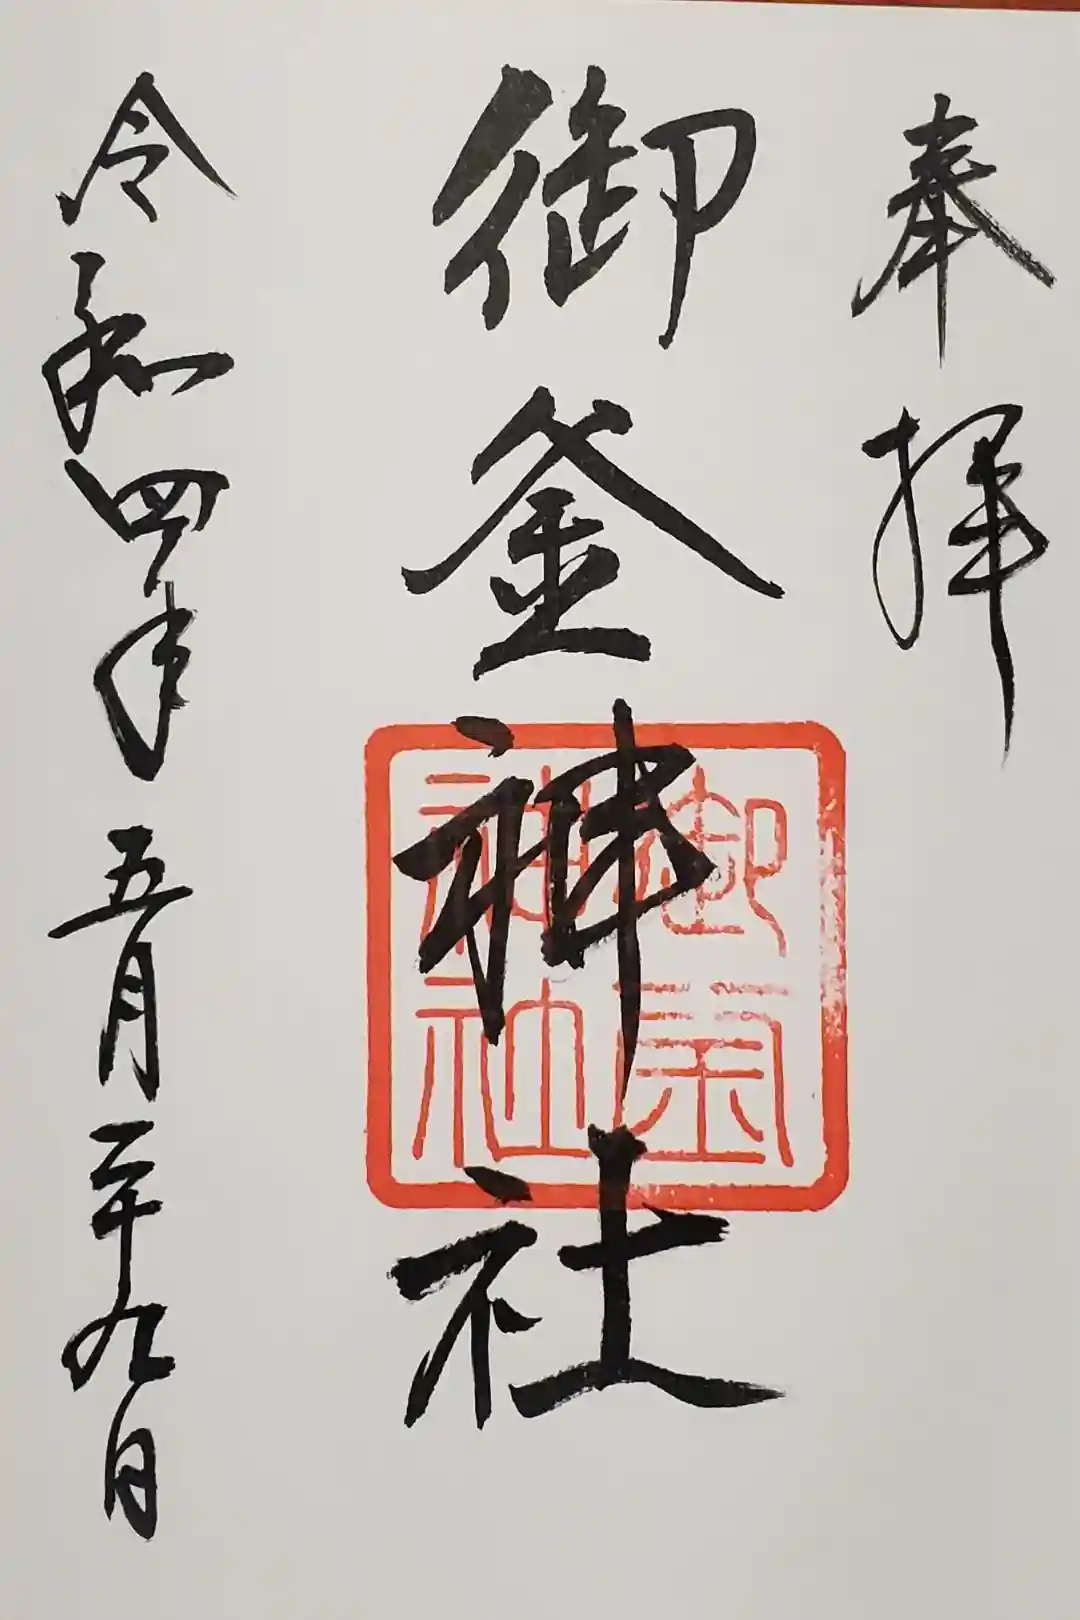 奉拝
御釜神社
令和四年五月二十九日
御釜
神社